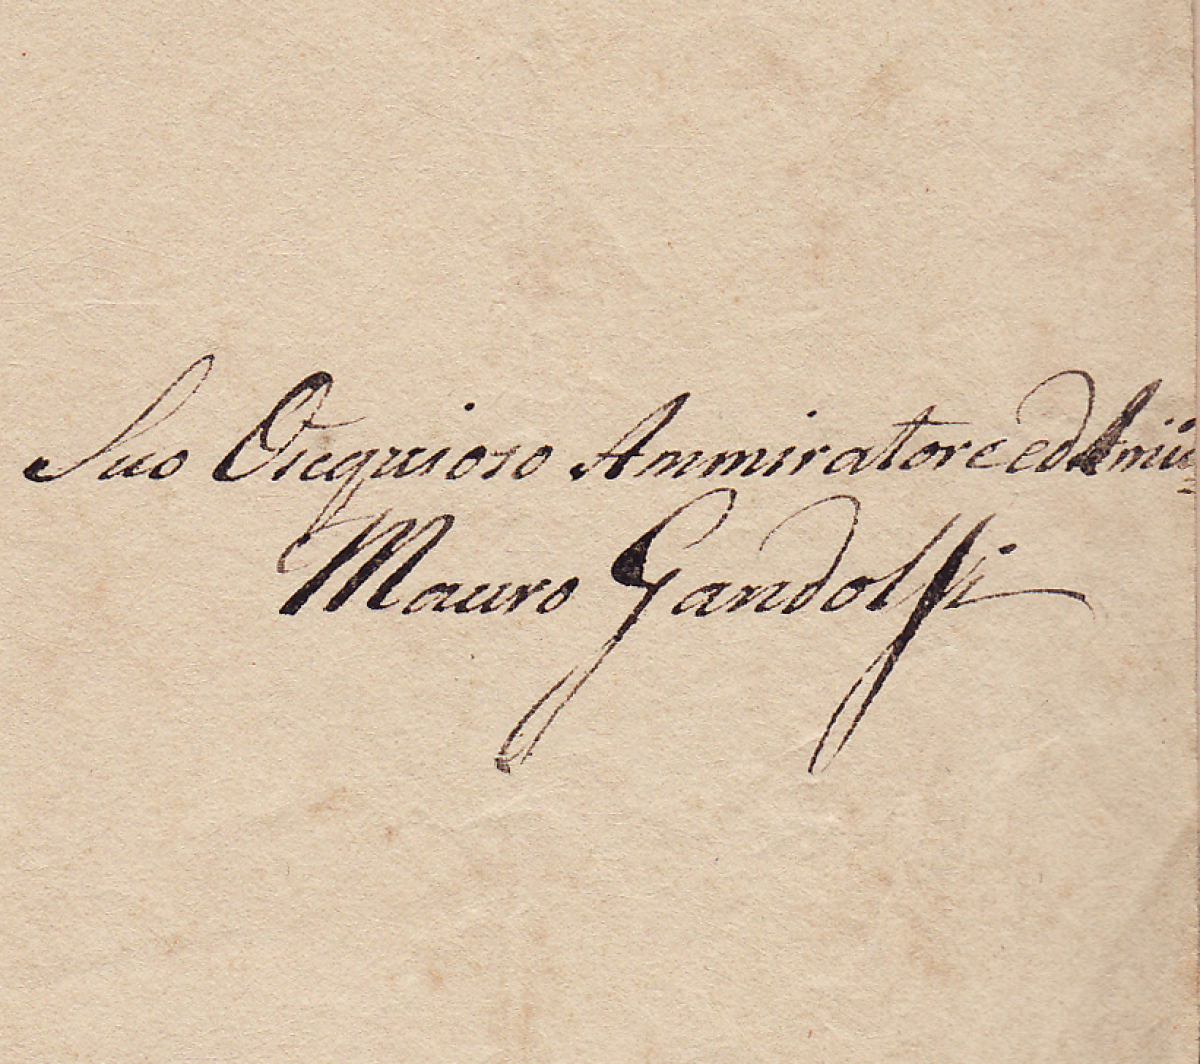 Suo Osequioso Ammiratore ed Amic
Mauro Gandolfi